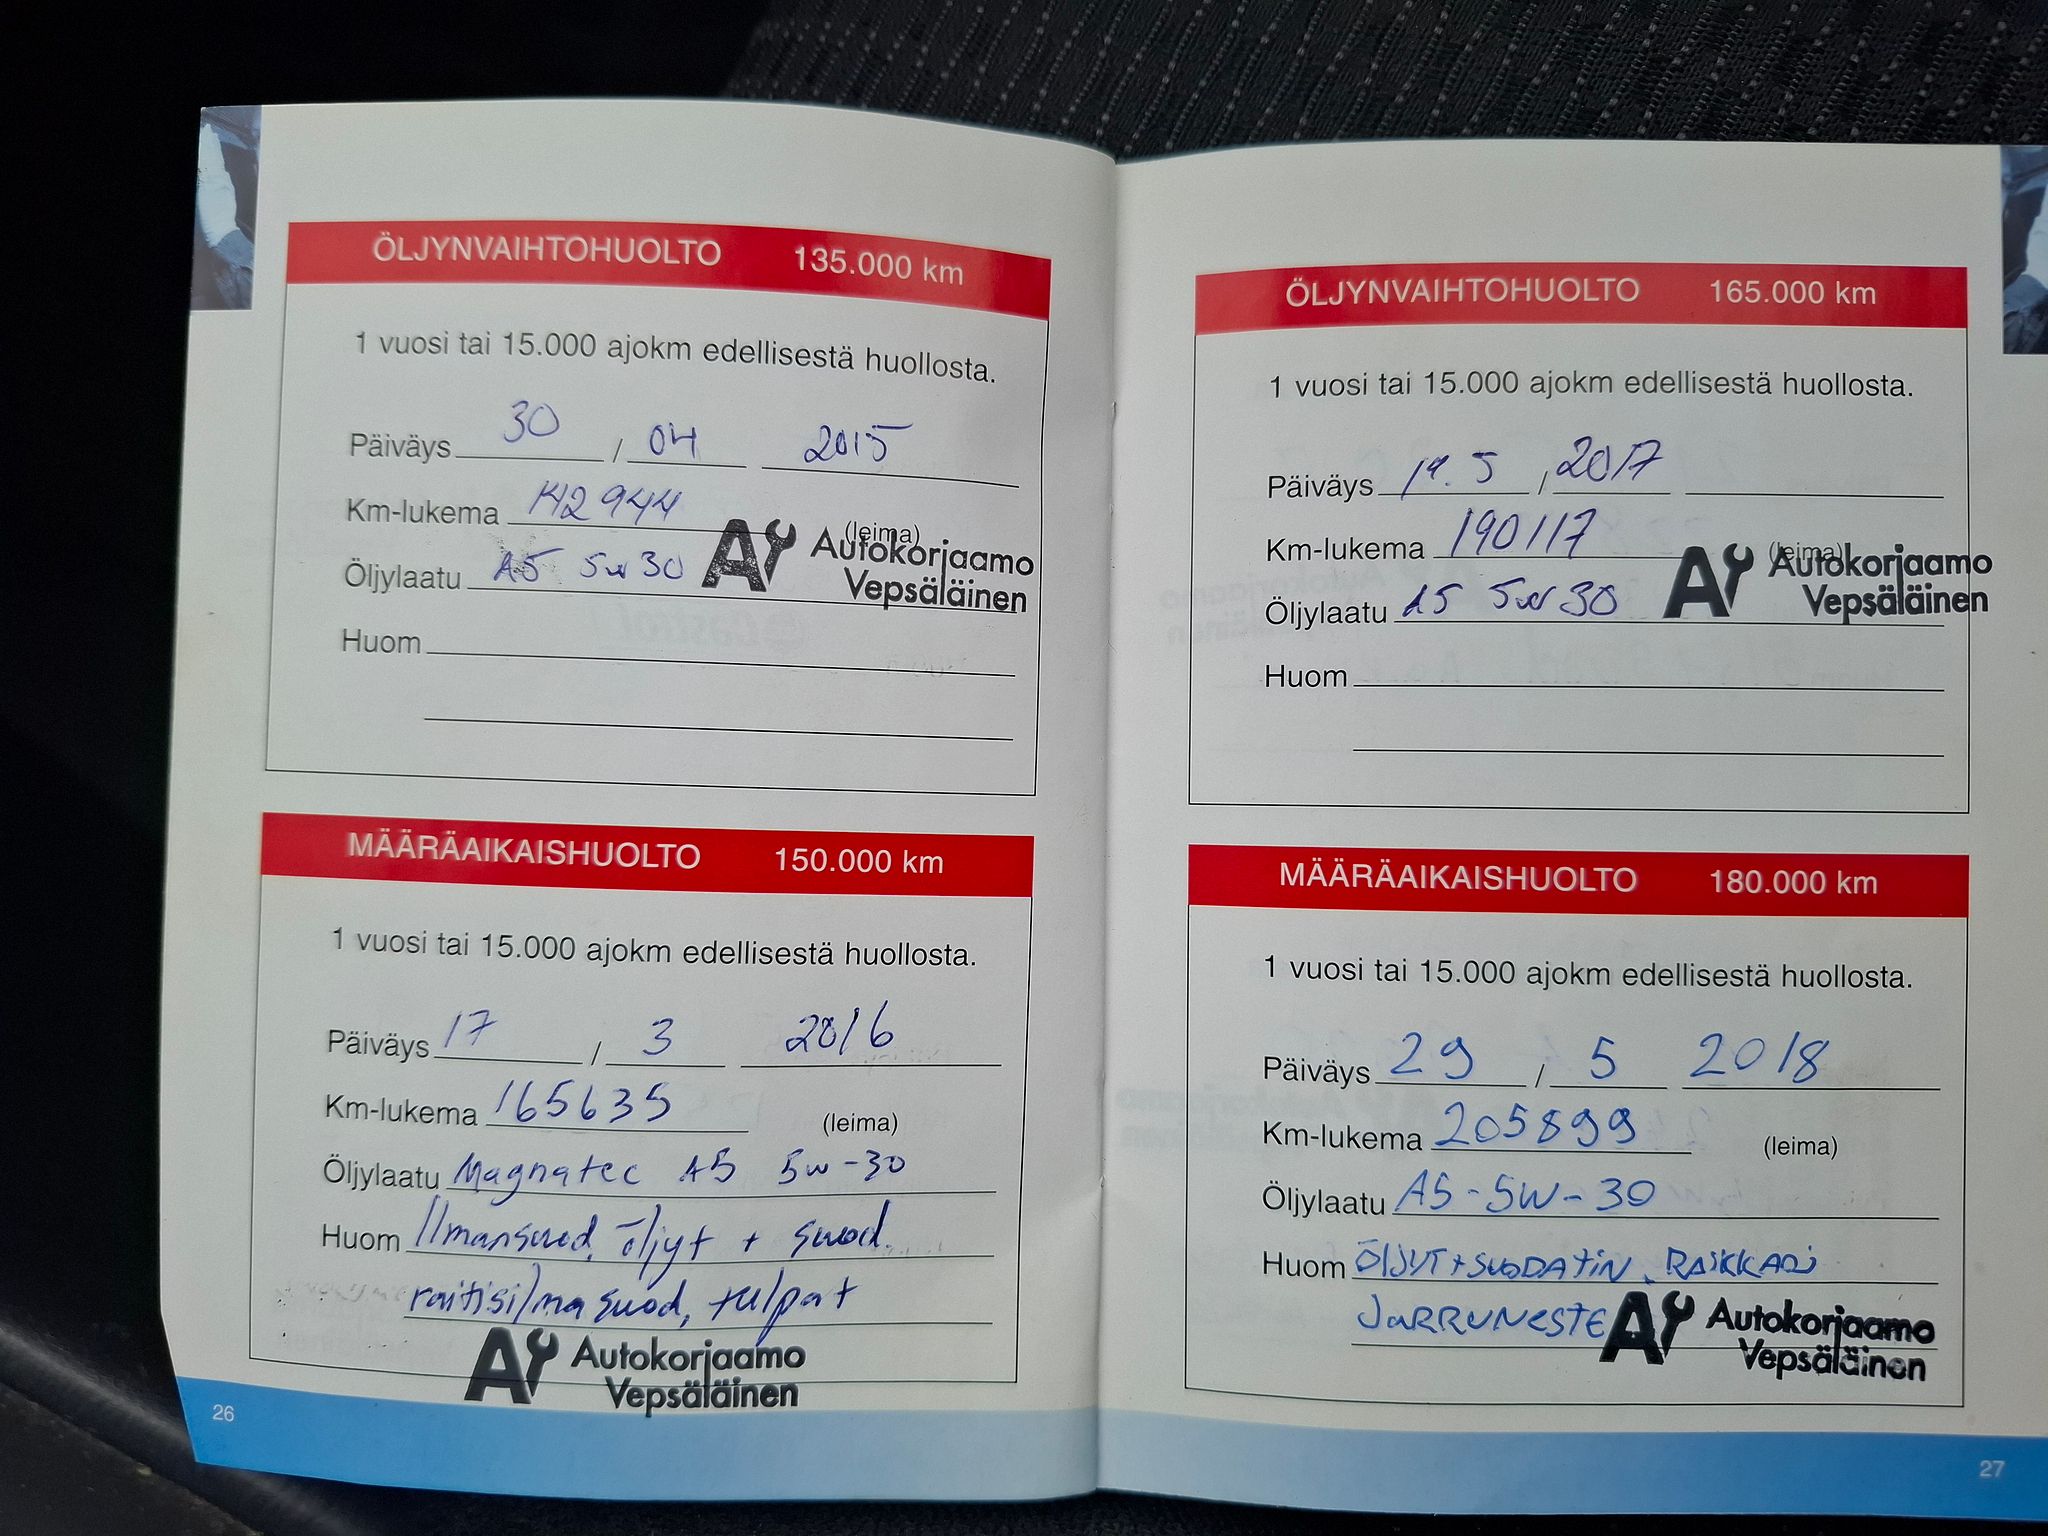 ÖLJYNVAIHTOHUOLTO 135.000 km
1 vuosi tai 15.000 ajokm edellisestä huollosta.
Päiväys 30 / 04 2015
Km-lukema 142944 (leima)
Öljylaatu A5 5w30
Autokorjaamo
Vepsäläinen
Huom
MÄÄRÄAIKAISHUOLTO 150.000 km
1 vuosi tai 15.000 ajokm edellisestä huollosta.
Päiväys 17 / 3 2016
Km-lukema 165635 (leima)
Öljylaatu Magnatec A5 5w-30
Huom Ilmansuod, öljyt + suod.
raitisilmasuod, tulpat
Autokorjaamo
Vepsäläinen
26
ÖLJYNVAIHTOHUOLTO 165.000 km
1 vuosi tai 15.000 ajokm edellisestä huollosta.
Päiväys 19.5 / 2017
Km-lukema 190117 (leima)
Öljylaatu A5 5w30
Autokorjaamo
Vepsäläinen
Huom
MÄÄRÄAIKAISHUOLTO 180.000 km
1 vuosi tai 15.000 ajokm edellisestä huollosta.
Päiväys 29 / 5 2018
Km-lukema 205899 (leima)
Öljylaatu A5-5W-30
Huom ÖLJYT+SUODATIN. RAIKKADI
JARRUNESTE
Autokorjaamo
Vepsäläinen
27